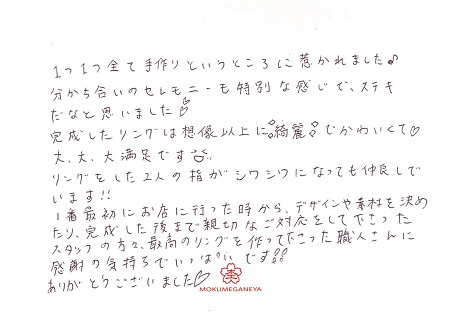 1つ1つ全て手作りというところに惹かれました♪
分かち合いのセレモニーも特別な感じで、ステキ
だなと思いました♡
完成したリングは想像以上に綺麗でかわいくて♡
大、大、大満足です
リングをした2人の指がシワシワになっても仲良しで
います!!
1番最初にお店に行った時から、デザインや素材を決め
たり、完成した後まで親切なご対応をして下さった
スタッフの方々、最高のリングを作って下さった職人さんに
感謝の気持ちでいっぱいです!!
ありがとうございました♡
MOKUMEGANEYA